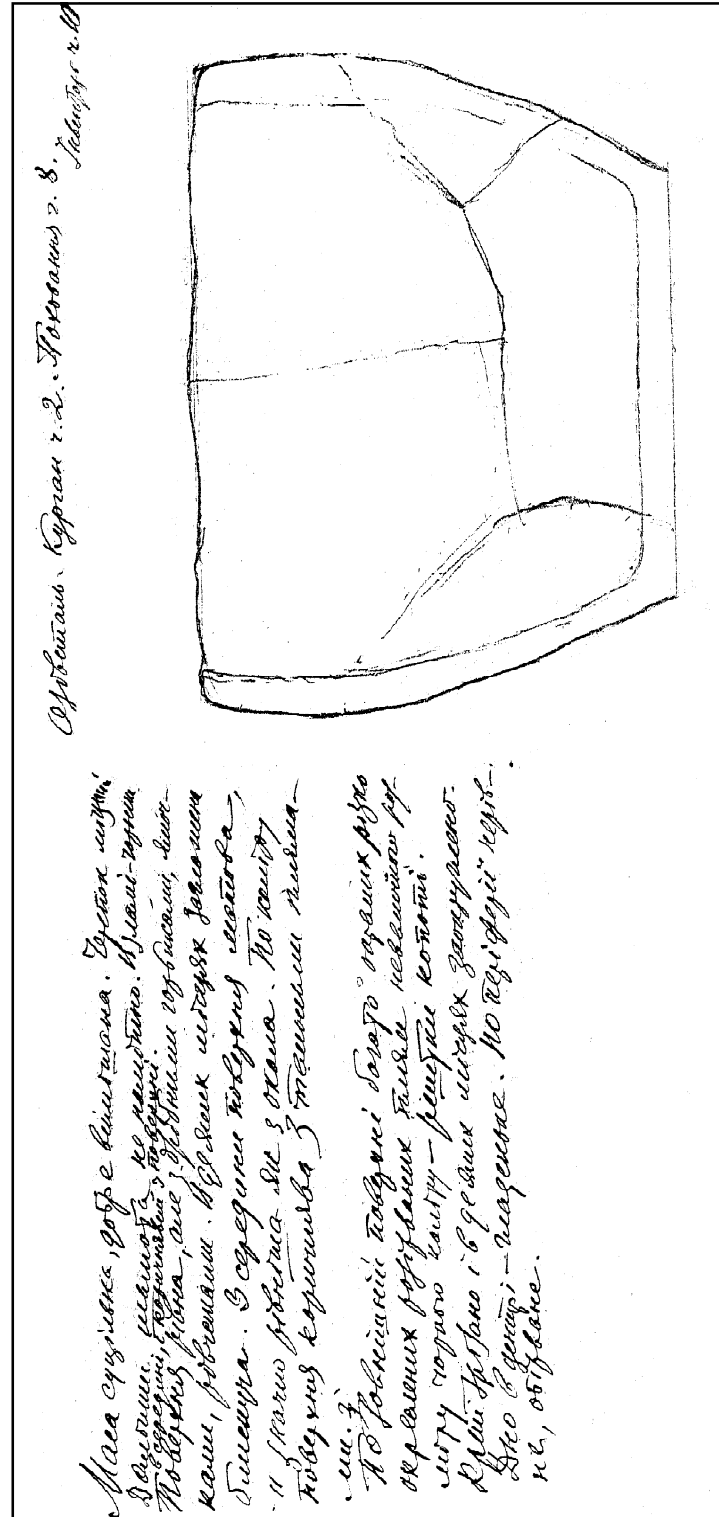 Озветаль. Курган ч. 2. Поховання ч. 8.
Инвентарь ч. 10
Маса суцільна, добре вимішана. Черепок міцний
Домішки: шамота не помітно. Излами - чорний
в середині, і коричневий з поверхні.
Поверхня рівна, але з дрібними горбиками, ямоч-
ками, рівчаками. В деяких місцях зовсім
блискуча. З середини поверхня матова,
й значно рівніша як з окола. По кольору
поверхня коричнява з темними пляма-
ми.
По зовнішній поверхні багато різко
окреслених розірваних плям невеликого роз-
міру чорного кольору — рештки копоті.
Край зрізано і в деяких місцях заокруглено.
Дно в центрі — гладеньке. По періферії нерів-
не, обірване.